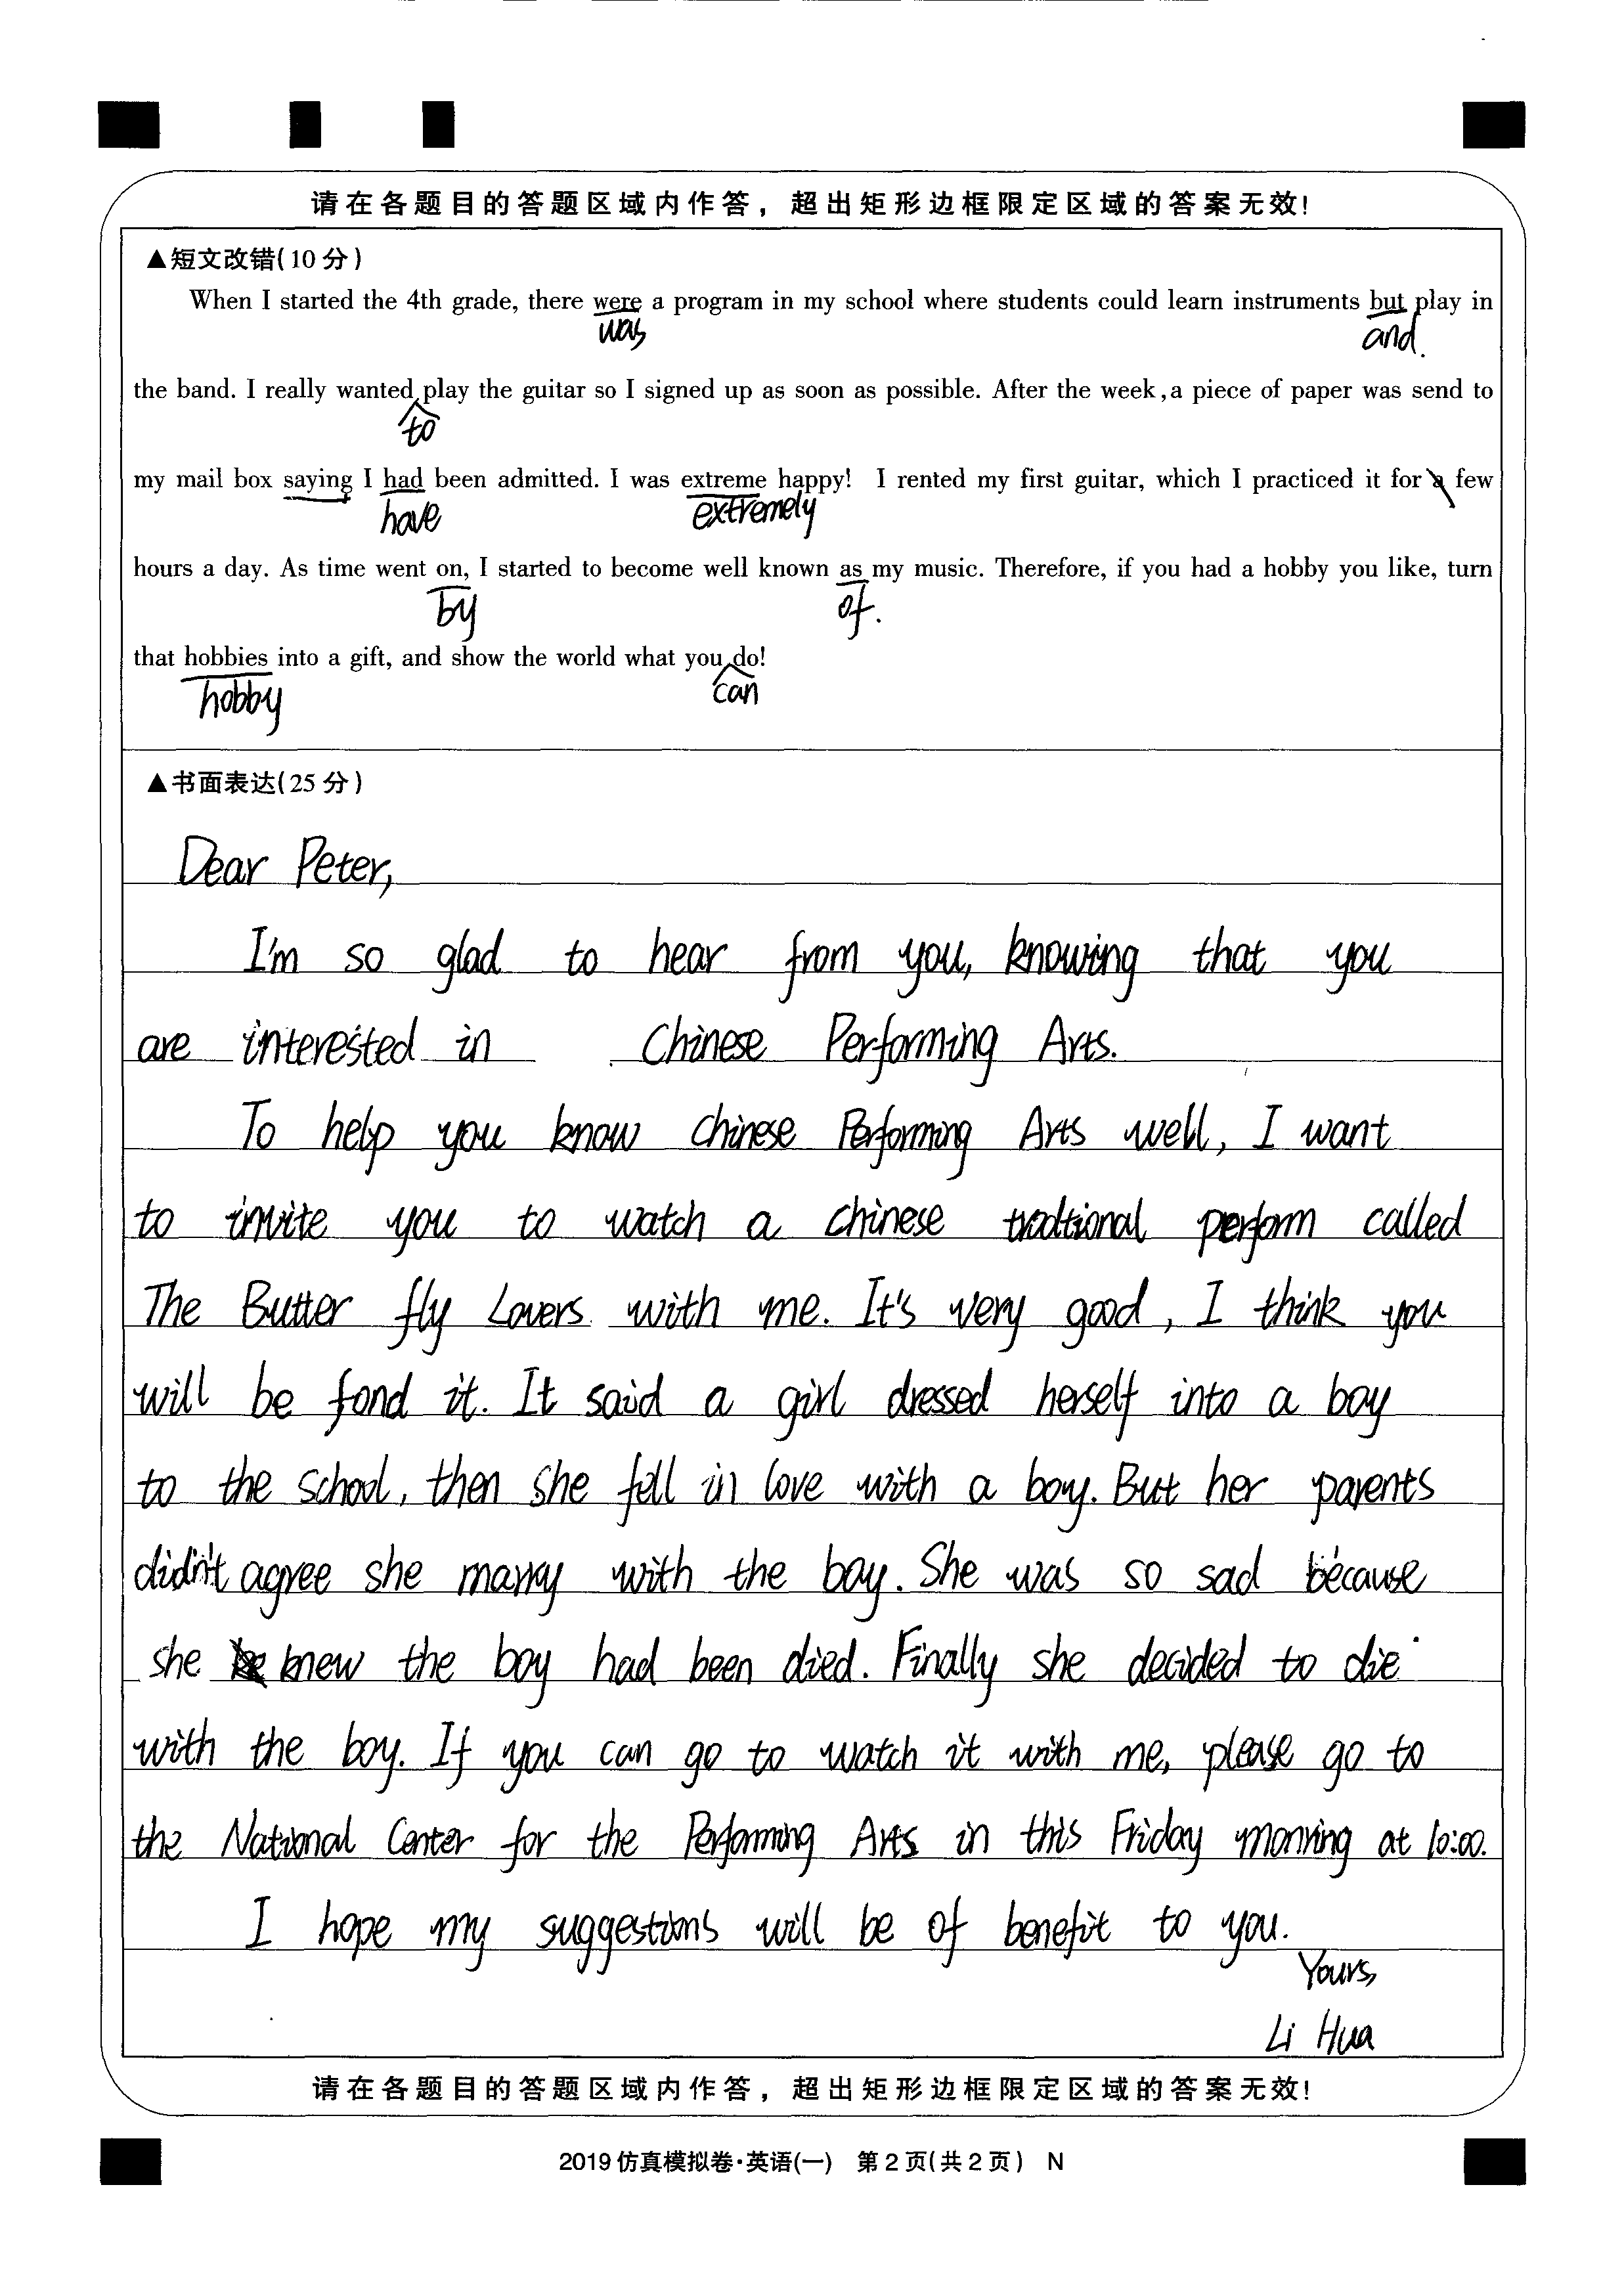 请在各题目的答题区域内作答，超出矩形边框限定区域的答案无效!
▲短文改错(10分)
When I started the 4th grade, there were a program in my school where students could learn instruments but play in
was and.
the band. I really wanted play the guitar so I signed up as soon as possible. After the week, a piece of paper was send to
to
my mail box saying I had been admitted. I was extreme happy! I rented my first guitar, which I practiced it for a few
have extremely
hours a day. As time went on, I started to become well known as my music. Therefore, if you had a hobby you like, turn
by of.
that hobbies into a gift, and show the world what you do!
hobby can
▲书面表达(25分)
Dear Peter,
I'm so glad to hear from you, knowing that you
are interested in Chinese Performing Arts.
To help you know Chinese Performing Arts well, I want
to invite you to watch a chinese tradtional perform called
The Butter fly Lovers with me. It's very good, I think you
will be fond it. It said a girl dressed herself into a boy
to the school, then she fell in love with a boy. But her parents
didn't agree she marry with the boy. She was so sad because
she knew the boy had been died. Finally she decided to die
with the boy. If you can go to watch it with me, please go to
the National Center for the Performing Arts in this Friday monring at 10:00.
I hope my suggestions will be of benefit to you.
Yours,
Li Hua
请在各题目的答题区域内作答，超出矩形边框限定区域的答案无效!
2019仿真模拟卷·英语(一) 第2页(共2页) N